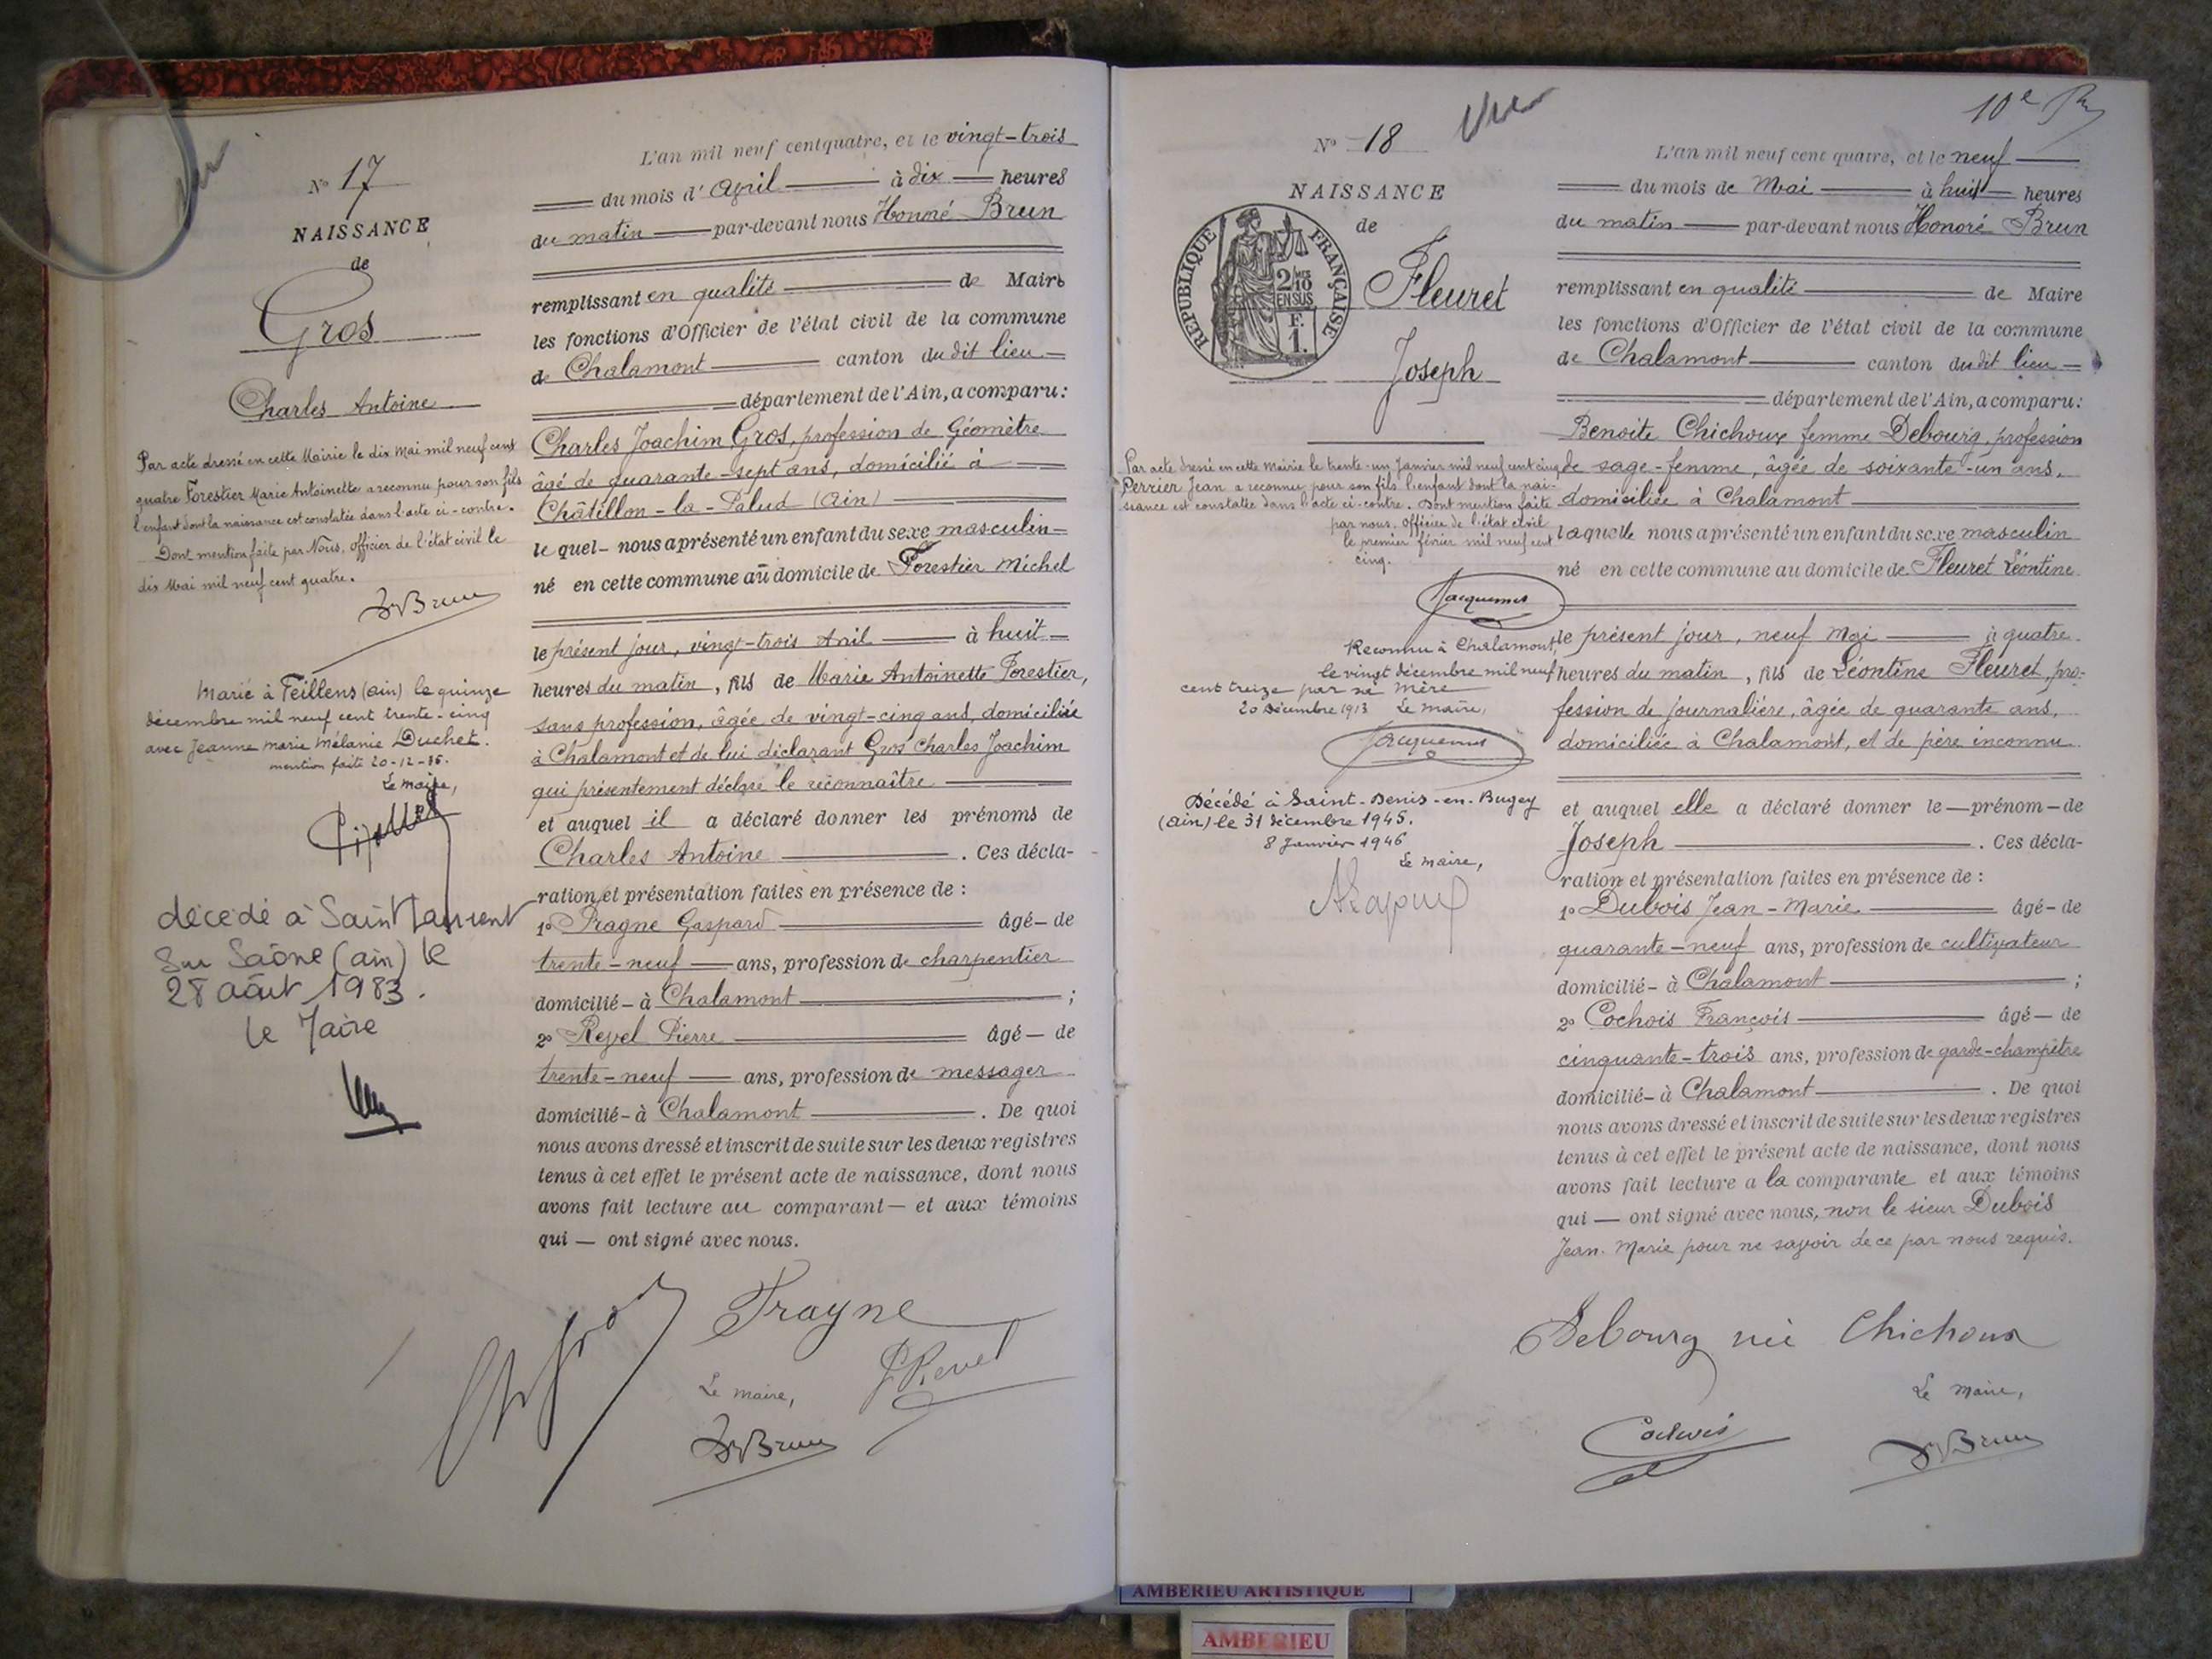 N° 17
NAISSANCE
de
Gros
Charles Antoine
Par acte dressé en cette Mairie le dix Mai mil neuf cent
quatre Forestier Marie Antoinette a reconnu pour son fils
l'enfant dont la naissance est constatée dans l'acte ci-contre.
Dont mention faite par Nous, officier de l'état civil le
dix Mai mil neuf cent quatre.
Brun
Marié à Feillens (ain) le quinze
décembre mil neuf cent trente-cinq
avec Jeanne Marie Mélanie Duchet.
mention faite 20-12-35.
Le maire,
décédé à Saint Laurent
sur Saône (ain) le
28 août 1983.
le Maire
L'an mil neuf cent quatre, et le vingt-trois
du mois d'Avril à dix heures
du matin par-devant nous Honoré Brun
remplissant en qualité de Maire
les fonctions d'Officier de l'état civil de la commune
de Chalamont canton dudit lieu
département de l'Ain, a comparu:
Charles Joachim Gros, profession de Géomètre
âgé de quarante-sept ans, domicilié à
Châtillon-la-Palud (Ain)
lequel nous a présenté un enfant du sexe masculin
né en cette commune au domicile de Forestier Michel
le présent jour, vingt-trois Avril à huit
heures du matin, fils de Marie Antoinette Forestier,
sans profession, âgée de vingt-cinq ans, domiciliée
à Chalamont et de lui déclarant Gros Charles Joachim
qui présentement déclare le reconnaître
et auquel il a déclaré donner les prénoms de
Charles Antoine. Ces décla-
ration et présentation faites en présence de:
1° Pragne Gaspard âgé de
trente-neuf ans, profession de charpentier
domicilié à Chalamont;
2° Revel Pierre âgé de
trente-neuf ans, profession de messager
domicilié à Chalamont. De quoi
nous avons dressé et inscrit de suite sur les deux registres
tenus à cet effet le présent acte de naissance, dont nous
avons fait lecture au comparant et aux témoins
qui ont signé avec nous.
Pragne
Revel
Le maire,
Brun
10e
N° 18
Vu
NAISSANCE
de
RÉPUBLIQUE FRANÇAISE
2/10
EN SUS
F.
1.
Fleuret
Joseph
Par acte dressé en cette Mairie le trente-un Janvier mil neuf cent cinq
Perrier Jean a reconnu pour son fils l'enfant dont la nai-
ssance est constatée dans l'acte ci-contre. Dont mention faite
par nous, officier de l'état civil
le premier février mil neuf cent
cinq.
Jacquemet
Reconnu à Chalamont,
le vingt décembre mil neuf
cent treize par sa mère
20 Décembre 1913 Le maire,
Jacquemet
Décédé à Saint-Denis-en-Bugey
(Ain) le 31 décembre 1945.
8 Janvier 1946
Le maire,
L'an mil neuf cent quatre, et le neuf
du mois de Mai à huit heures
du matin par-devant nous Honoré Brun
remplissant en qualité de Maire
les fonctions d'Officier de l'état civil de la commune
de Chalamont canton dudit lieu
département de l'Ain, a comparu:
Benoite Chichoux femme Debourg, profession
de sage-femme, âgée de soixante-un ans,
domiciliée à Chalamont
laquelle nous a présenté un enfant du sexe masculin
né en cette commune au domicile de Fleuret Léontine
le présent jour, neuf Mai à quatre
heures du matin, fils de Léontine Fleuret, pro-
fession de journalière, âgée de quarante ans,
domiciliée à Chalamont, et de père inconnu
et auquel elle a déclaré donner le prénom de
Joseph. Ces décla-
ration et présentation faites en présence de:
1° Dubois Jean-Marie âgé de
quarante-neuf ans, profession de cultivateur
domicilié à Chalamont;
2° Cochois François âgé de
cinquante-trois ans, profession de garde-champêtre
domicilié à Chalamont. De quoi
nous avons dressé et inscrit de suite sur les deux registres
tenus à cet effet le présent acte de naissance, dont nous
avons fait lecture a la comparante et aux témoins
qui ont signé avec nous, non le sieur Dubois
Jean-Marie pour ne savoir de ce par nous requis.
Debourg née Chichoux
Le Maire,
Cochois
Brun
AMBERIEU ARTISTIQUE
AMBERIEU